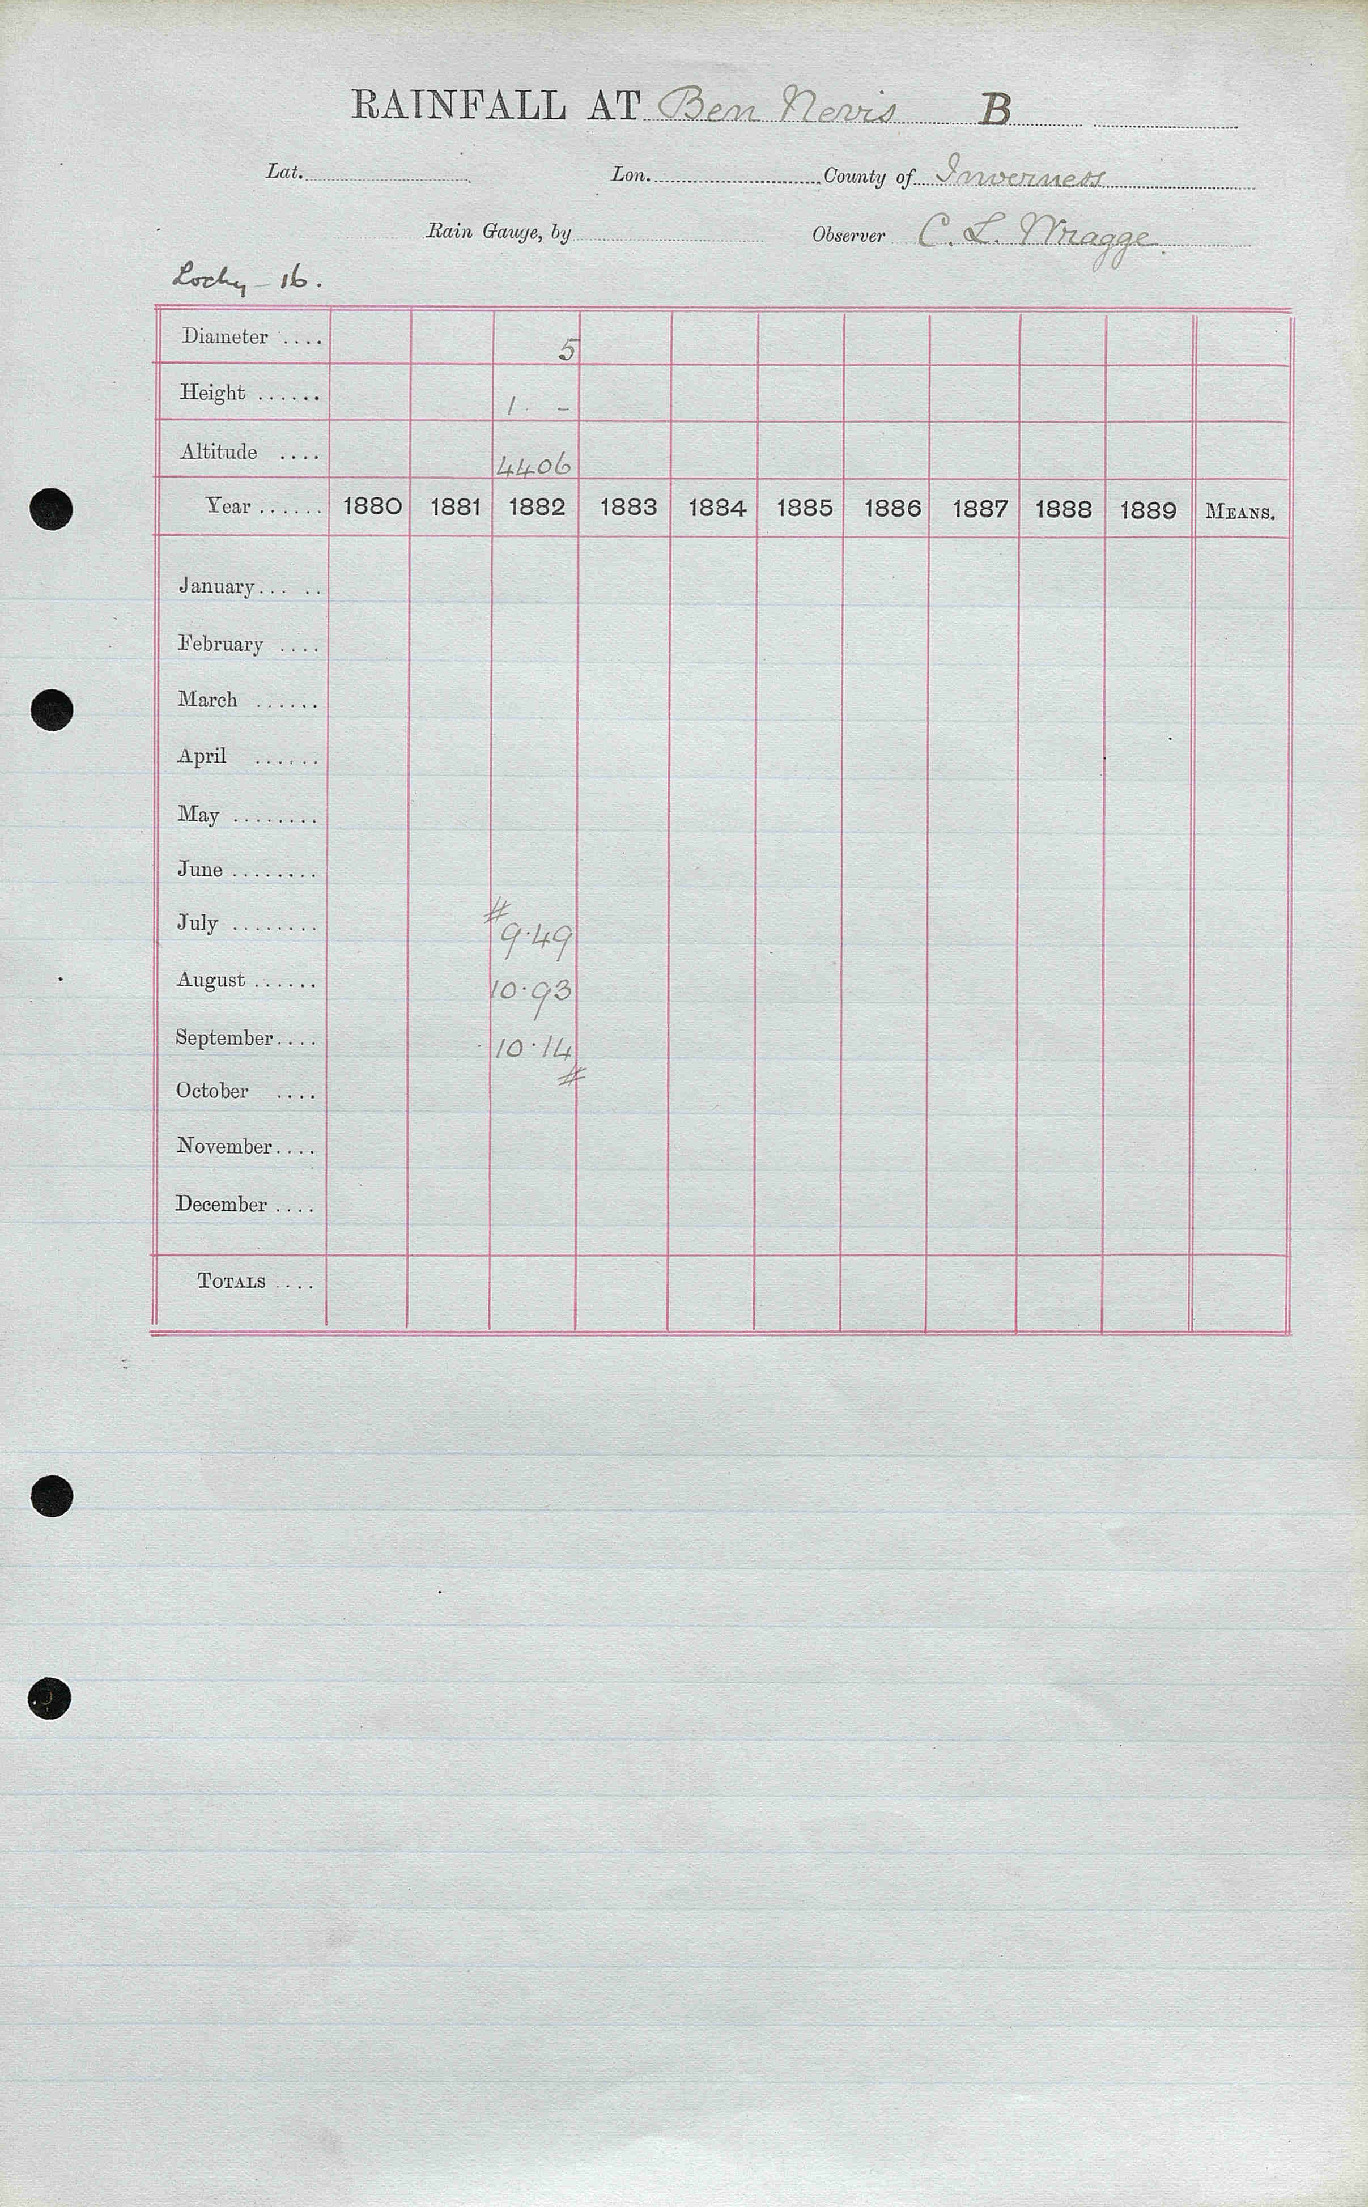 RAINFALL AT Ben Nevis B
Lat. Lon. County of Inverness
Rain Gauge, by Observer C. L. Wragge.
Lochy – 16.
Diameter .... 5
Height ...... 1. –
Altitude .... 4406
Year ...... 1880 1881 1882 1883 1884 1885 1886 1887 1888 1889 MEANS.
January... ..
February ....
March ......
April ......
May ........
June ........
#
July ........ 9.49
August ...... 10.93
September.... 10.14
#
October ....
November....
December ....
TOTALS ....